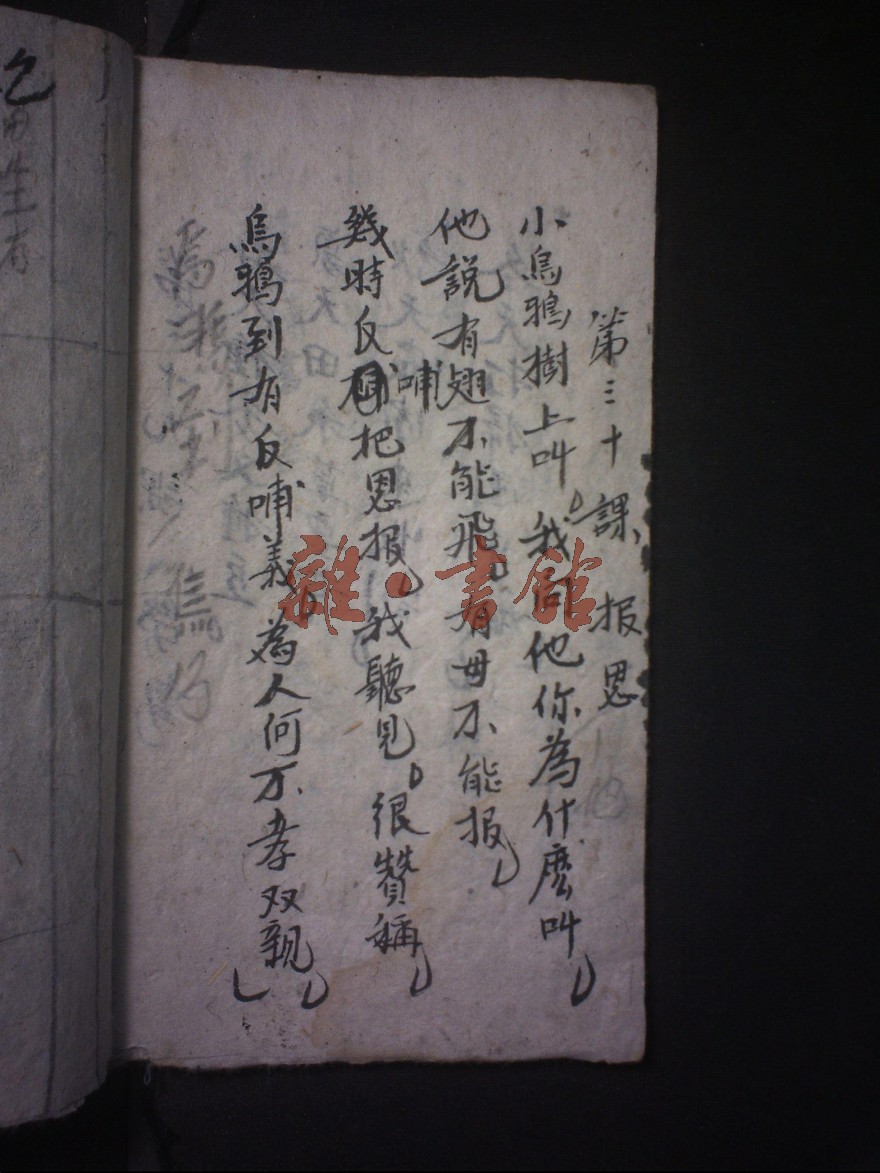 第三十課、报恩
小烏鴉樹上叫。我问他你為什麽叫
他說有翅不能飛。有母不能报
幾時反哺把恩报。我聽見。很贊稱
烏鴉到有反哺義。為人何不孝双親
雜·書館